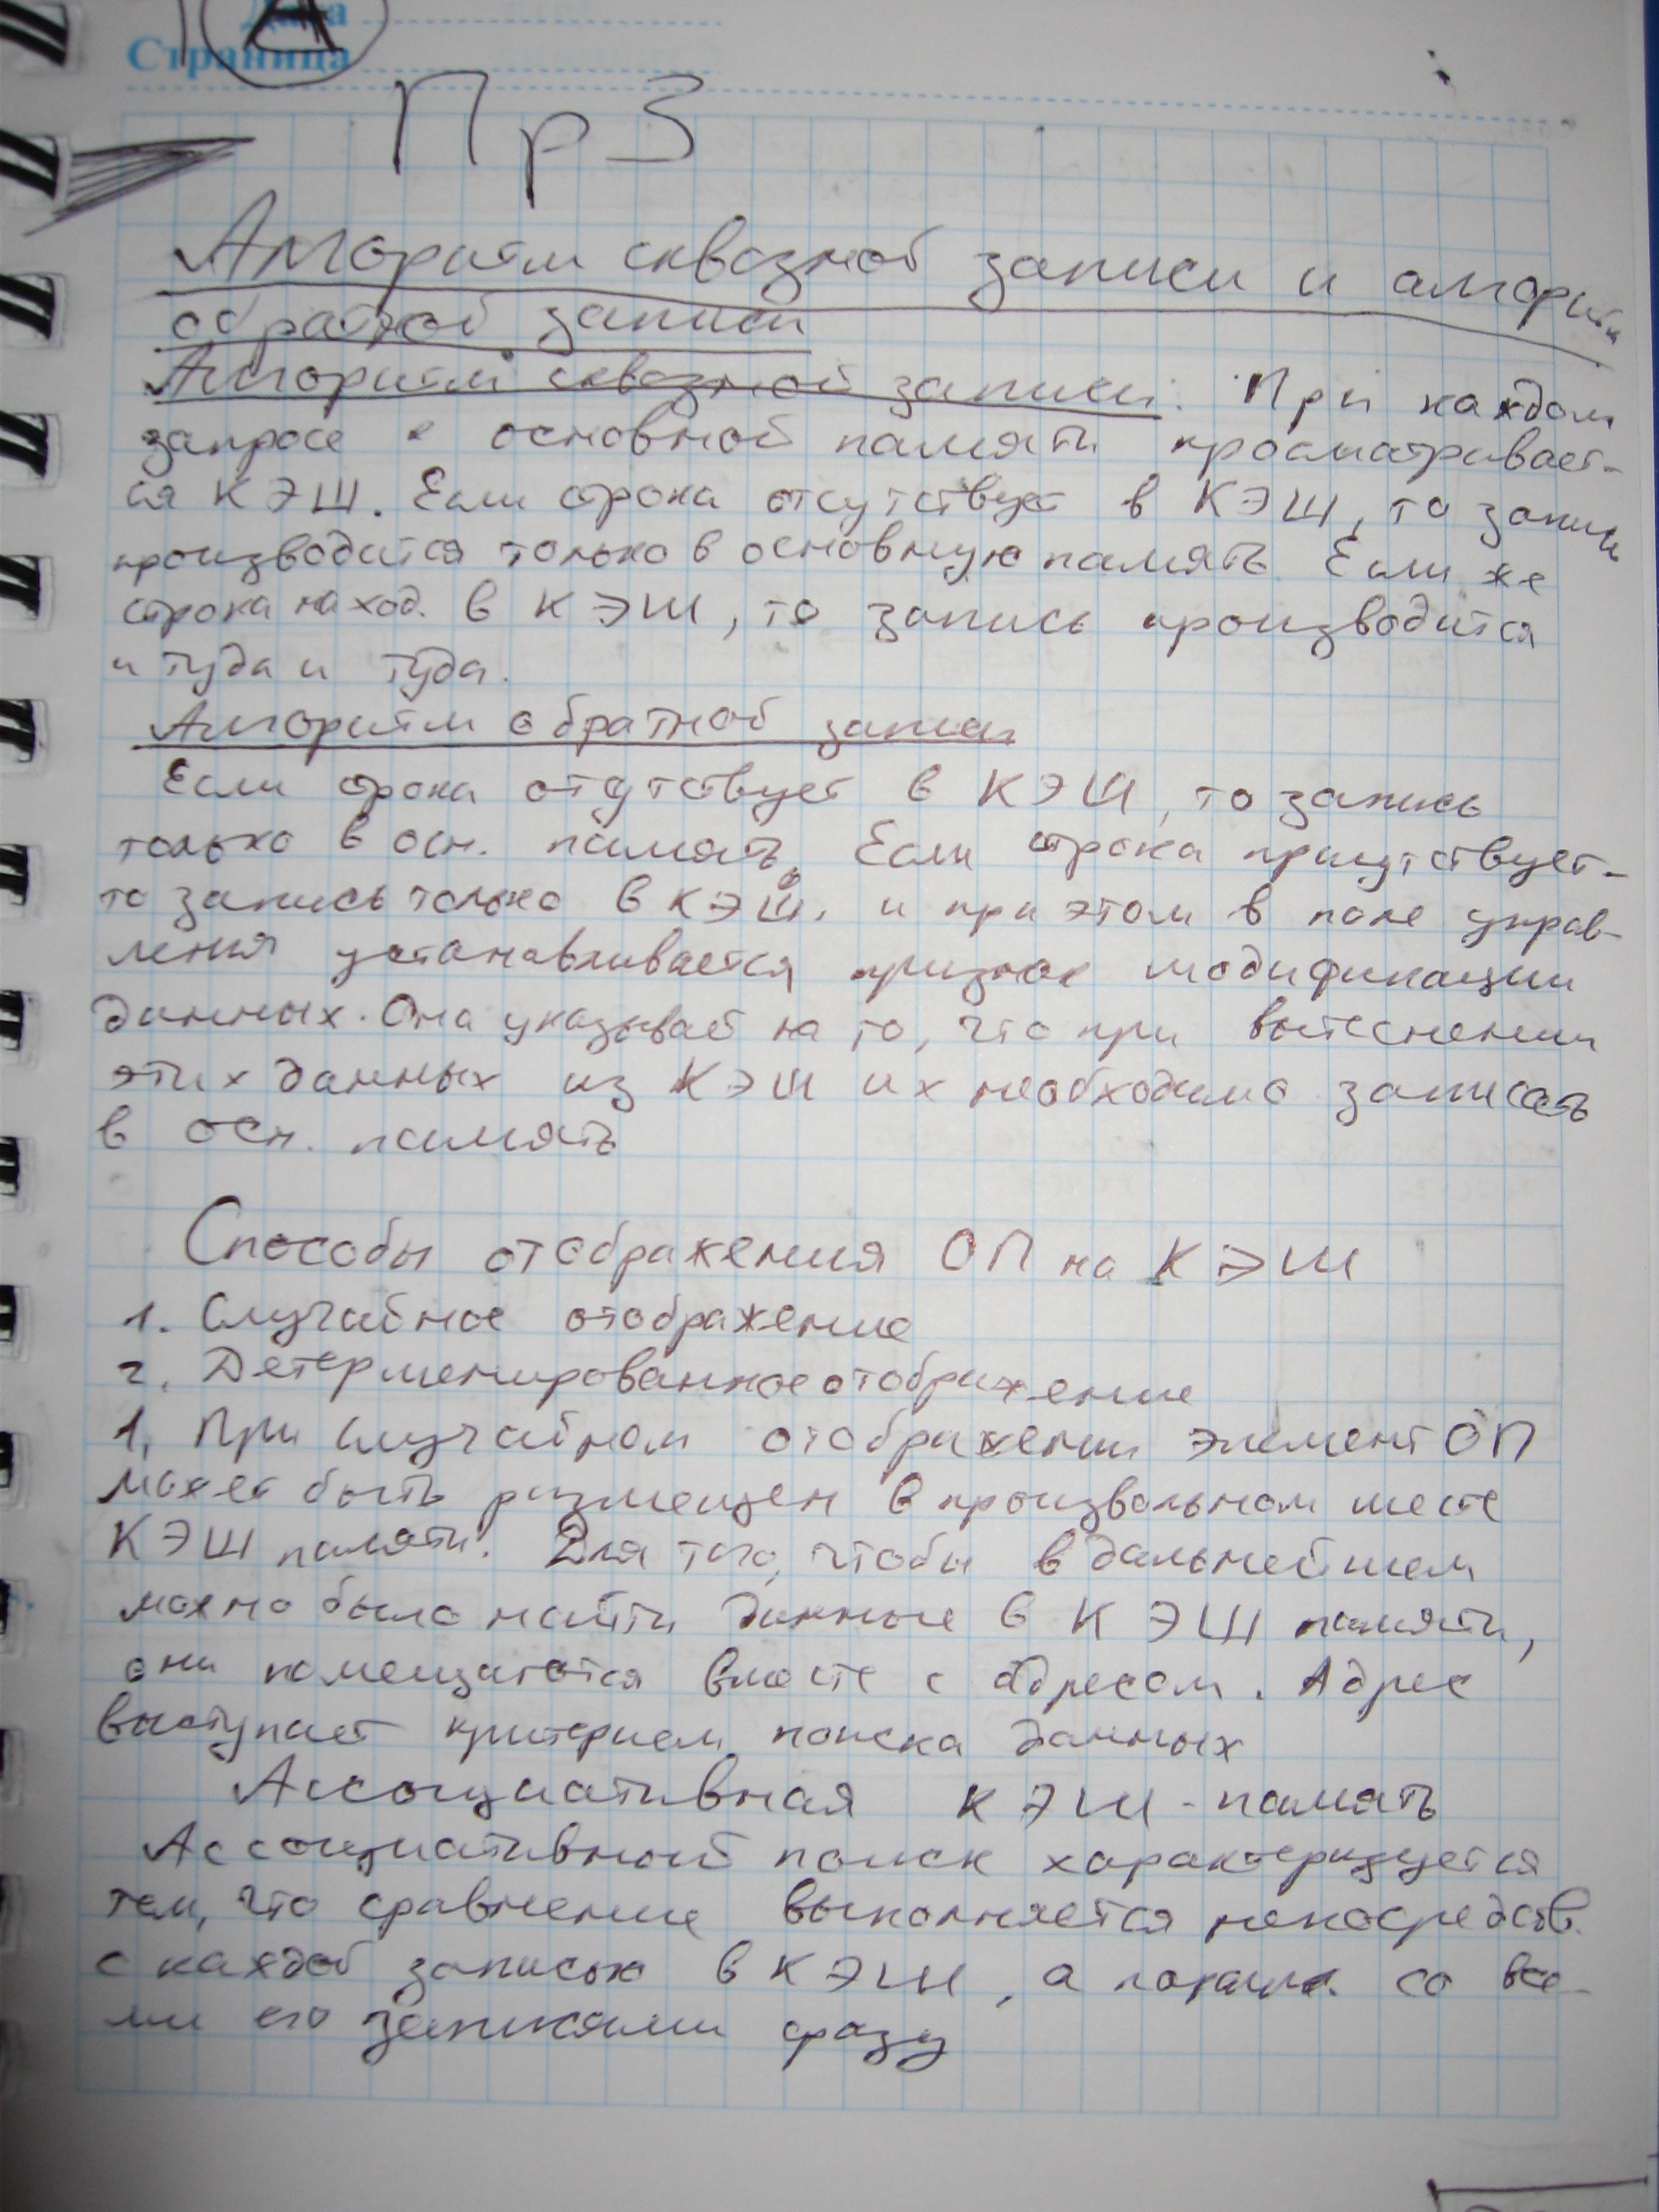 Дата
А
Страница
Пр 3
Алгоритм сквозной записи и алгоритм
обратной записи
Алгоритм сквозной записи. При каждом
запросе к основной памяти просматривает-
ся КЭШ. Если строка отсутствует в КЭШ, то запись
производится только в основную память. Если же
строка наход. в КЭШ, то запись производится
и туда и туда.
Алгоритм обратной записи
Если строка отсутствует в КЭШ, то запись
только в осн. память. Если строка присутствует-
то запись только в КЭШ. и при этом в поле управ-
ления устанавливается признак модификации
данных. Она указывает на то, что при вытеснении
этих данных из КЭШ их необходимо записать
в осн. память
Способы отображения ОП на КЭШ
1. Случайное отображение
2. Детерменированное отображение
1. При случайном отображении элемент ОП
может быть размещен в произвольном месте
КЭШ памяти. Для того, чтобы в дальнейшем
можно было найти данные в КЭШ памяти,
они помещаются вместе с адресом. Адрес
выступает критерием поиска данных
Ассоциативная КЭШ-память
Ассоциативный поиск характеризуется
тем, что сравнение выполняется непосредств.
с каждой записью в КЭШ, а со все-
ми его записями сразу